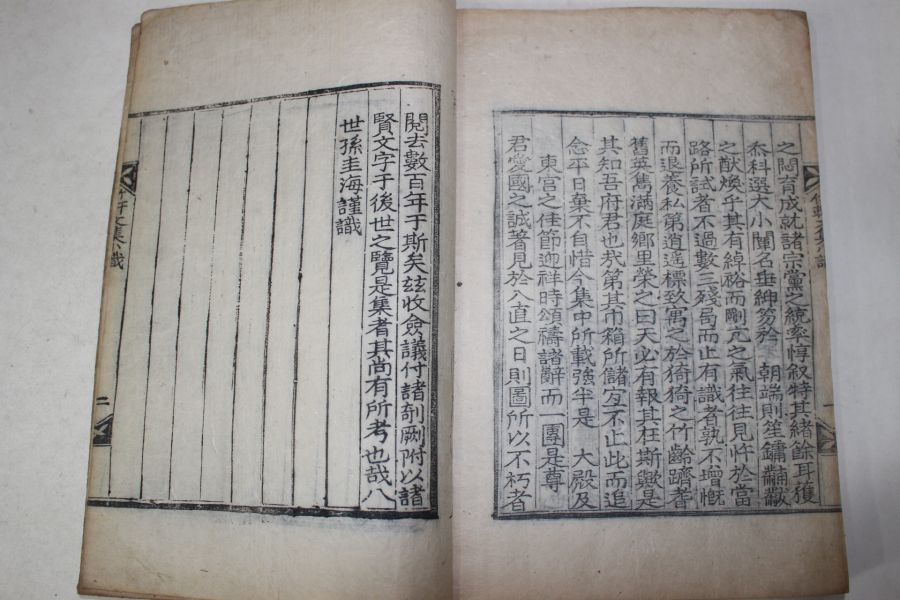 之閎育成就諸宗黨之統率惇叙特其緒餘耳獲
忝科選大小闈名垂紳笏於 朝端則笙鏞黼黻
之猷煥乎其有綽裕而剛亢之氣往往見忤於當
路所試者不過數三殘局而止有識者孰不增慨
而退養私第逍遙標致寓之於猗猗之竹齡躋耆
舊英雋滿庭鄕里榮之曰天必有報其在斯歟是
其知吾府君也哉第其巾箱所儲宜不止此而追
念平日棄不自惜今集中所載強半是 大殿及
東宮之佳節迎祥時頌禱諸辭而一團是尊
君愛國之誠著見於入直之日則圖所以不朽者
一
閱去數百年于斯矣玆收僉議付諸剞劂附以諸
賢文字于後世之覽是集者其尚有所考也哉八
世孫圭海謹識
文集小識
二